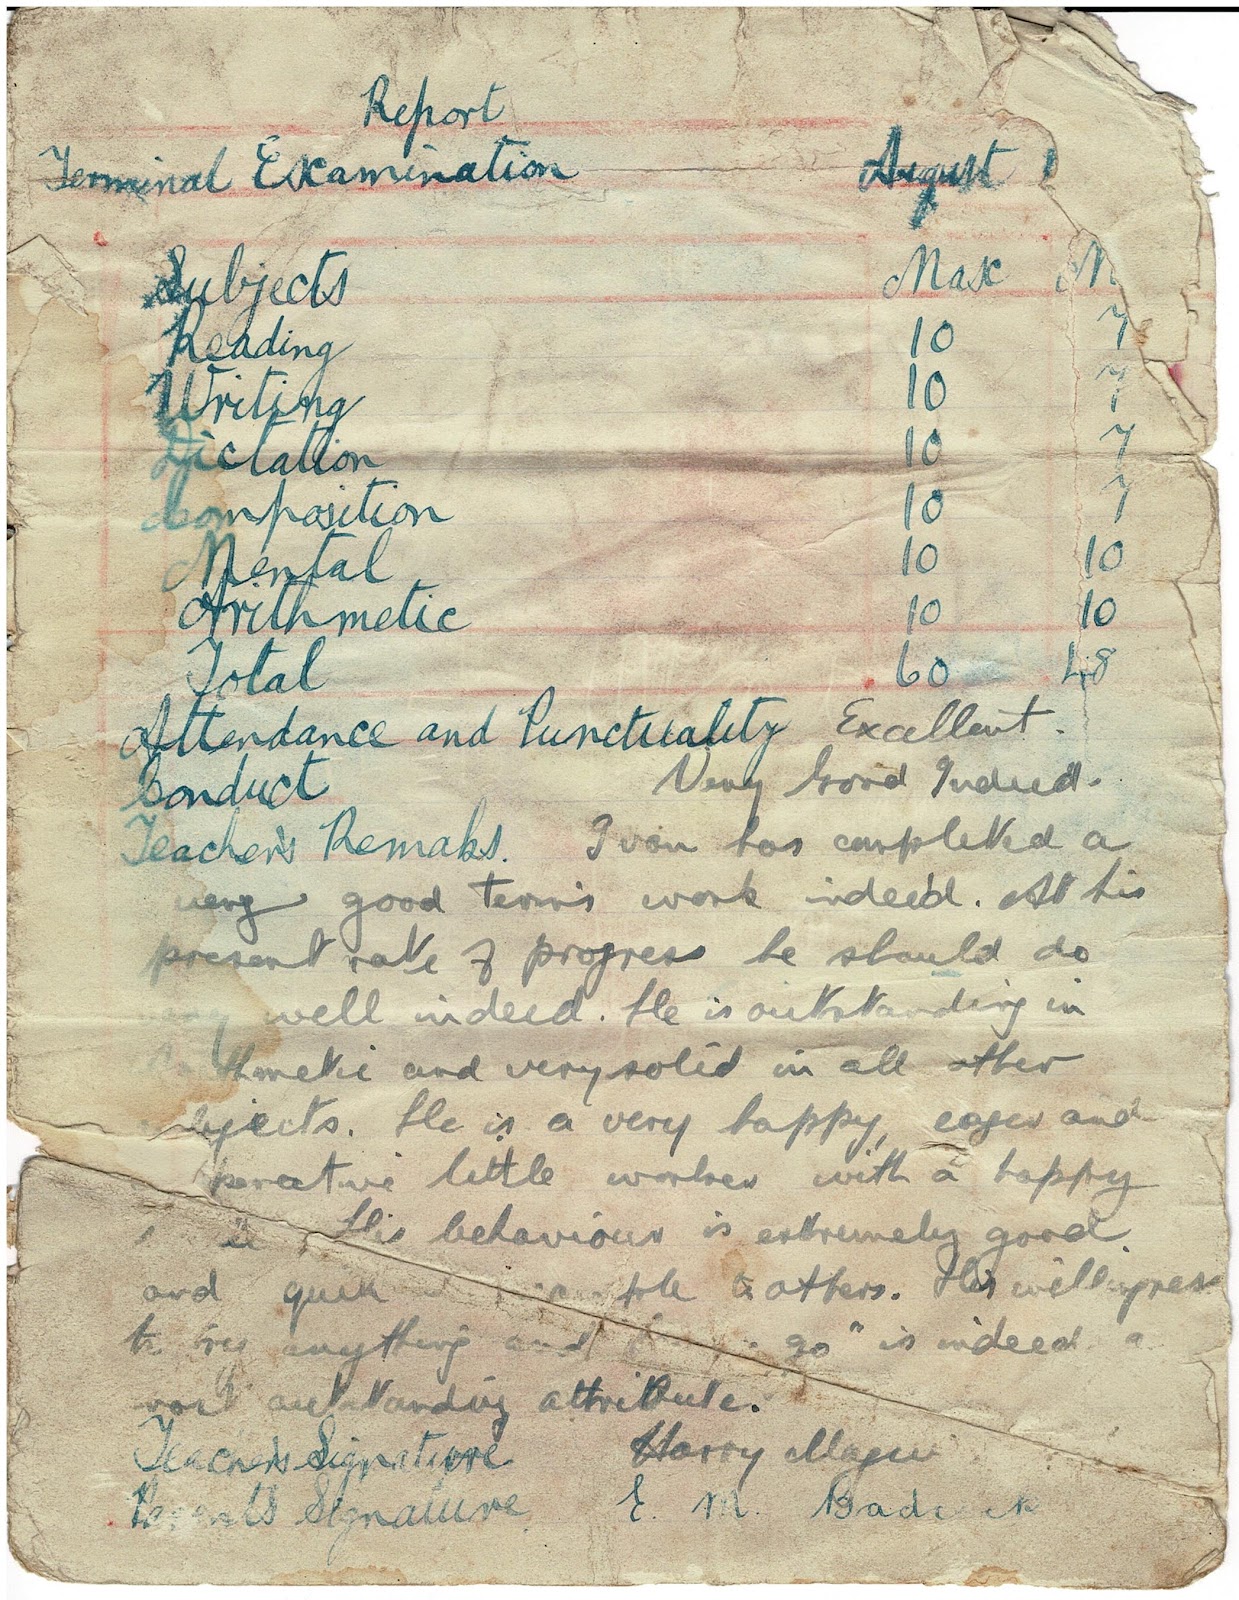 Report
Terminal Examination August
Subjects Max M
Reading 10 7
Writing 10 7
Dictation 10 7
Composition 10 7
Mental 10 10
Arithmetic 10 10
Total 60 48
Attendance and Punctuality Excellent.
Conduct Very Good Indeed.
Teacher's Remaks. Ivan has completed a
very good term's work indeed. At his
present rate of progress he should do
well indeed. He is outstanding in
thmetic and very solid in all other
bjects. He is a very happy, eager and
perative little worker with a happy
His behaviour is extremely good
and to others. His willingness
to try anything and go" is indeed a
most outstanding attribute.
Teacher's Signature Harry
Parents Signature E. M.